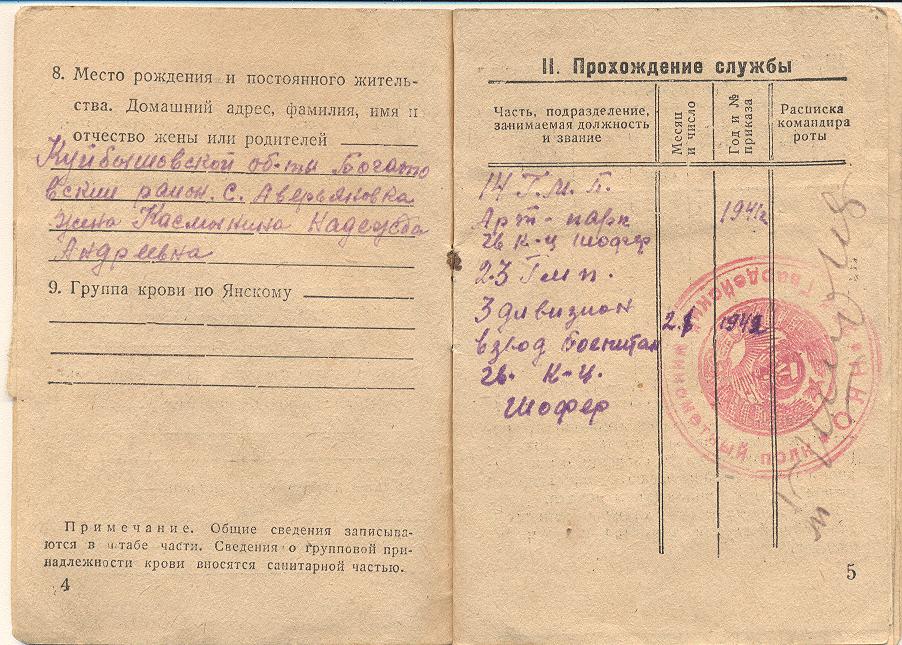 8. Место рождения и постоянного житель-
ства. Домашний адрес, фамилия, имя и
отчество жены или родителей
Куйбышовской об-ти Богато
вский район. С. Аверьяновка
жена Касмынина Надежда
Андреевна
9. Группа крови по Янскому
Примечание. Общие сведения записыва-
ются в штабе части. Сведения о групповой при-
надлежности крови вносятся санитарной частью.
4
II. Прохождение службы
Часть, подразделение,
занимаемая должность
и звание
Месяц
и число
Год и №
приказа
Расписка
командира
роты
14 Г.М.П.
Арт-парк 1941г
гв к-ц шофер
23 Гмп.
3 дивизион
взвод боепитан 1942
гв. к-ц.
шофер
Гвардейский минометный полк
НКО
5